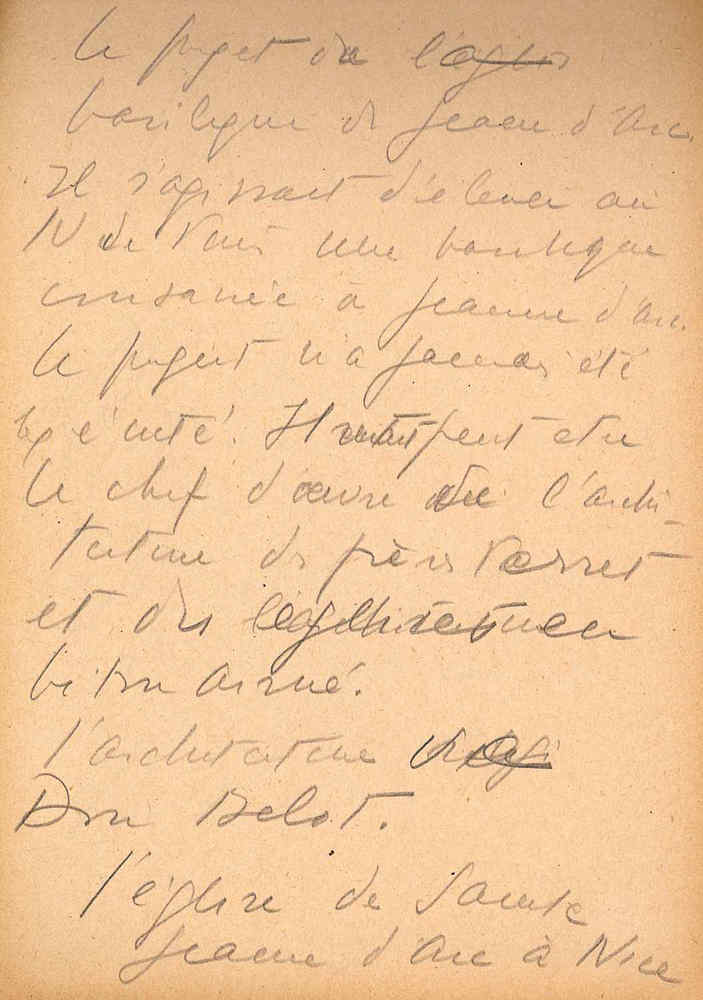 Le projet de l'église
basilique de Jeanne d'Arc.
Il s'agissait d'élever au
N de Paris une basilique
consacrée à Jeanne d'Arc.
Le projet n'a jamais été
exécuté. Il peut etre
le chef d'œuvre de l'archi-
tecture des frères Perret
et de l'architecture en
béton armé.
L'architecture
Dom Bellot.
L'église de Sainte
Jeanne d'Arc à Nice